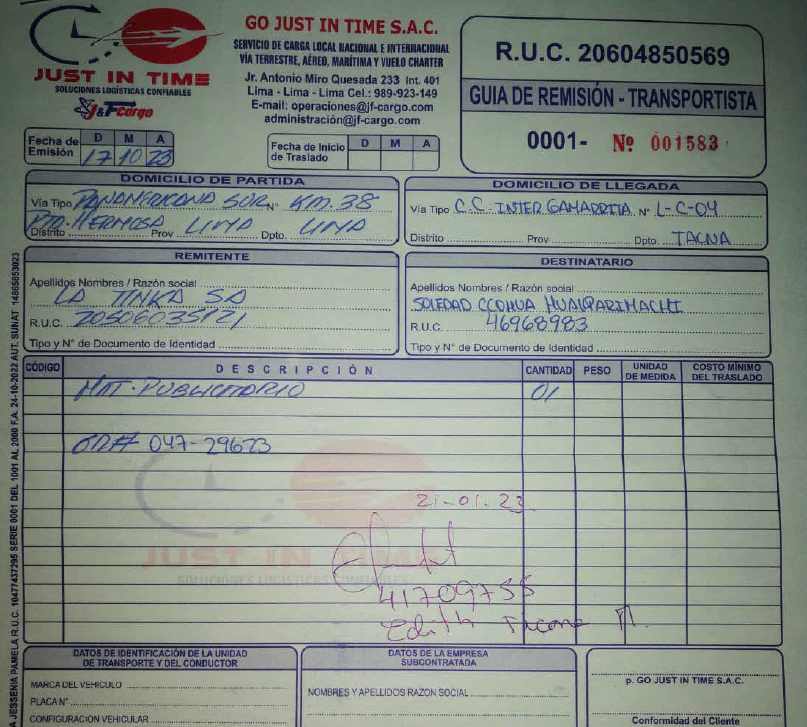 JUST IN TIME
SOLUCIONES LOGÍSTICAS CONFIABLES
J&F Cargo
GO JUST IN TIME S.A.C.
SERVICIO DE CARGA LOCAL NACIONAL E INTERNACIONAL
VÍA TERRESTRE, AÉREO, MARÍTIMA Y VUELO CHARTER
Jr. Antonio Miro Quesada 233 Int. 401
Lima - Lima - Lima Cel.: 989-923-149
E-mail: operaciones@jf-cargo.com
administración@jf-cargo.com
R.U.C. 20604850569
GUIA DE REMISIÓN - TRANSPORTISTA
0001- Nº 001583
Fecha de Emisión D M A
17 10 23
Fecha de Inicio de Traslado D M A
DOMICILIO DE PARTIDA
Vía Tipo PANAMERICANA SUR Nº KM.38
PTA-HERMOSA LIMA LIMA
Distrito Prov Dpto.
DOMICILIO DE LLEGADA
Vía Tipo C.C. INTER GAMARRITA Nº L-C-04
Distrito Prov Dpto. TACNA
REMITENTE
Apellidos Nombres / Razón social
LA TINKA SA
R.U.C. 20506035121
Tipo y Nº de Documento de Identidad
DESTINATARIO
Apellidos Nombres / Razón social
SOLEDAD CCOHUA HUALPARIMACHI
R.U.C. 46968983
Tipo y Nº de Documento de Identidad
CÓDIGO DESCRIPCIÓN CANTIDAD PESO UNIDAD DE MEDIDA COSTO MÍNIMO DEL TRASLADO
MAT. PUBLICITARIO 01
047-29673
21-01-23
41709755
Edith
JUST IN TIME
SOLUCIONES LOGÍSTICAS CONFIABLES
DATOS DE IDENTIFICACIÓN DE LA UNIDAD
DE TRANSPORTE Y DEL CONDUCTOR
MARCA DEL VEHICULO
PLACA Nº
CONFIGURACIÓN VEHICULAR
DATOS DE LA EMPRESA
SUBCONTRATADA
NOMBRES Y APELLIDOS RAZON SOCIAL
p. GO JUST IN TIME S.A.C.
Conformidad del Cliente
JESSENIA PAMELA R.U.C. 10477437295 SERIE 0001 DEL 1001 AL 2000 F.A. 24-10-2022 AUT. SUNAT 14865853023